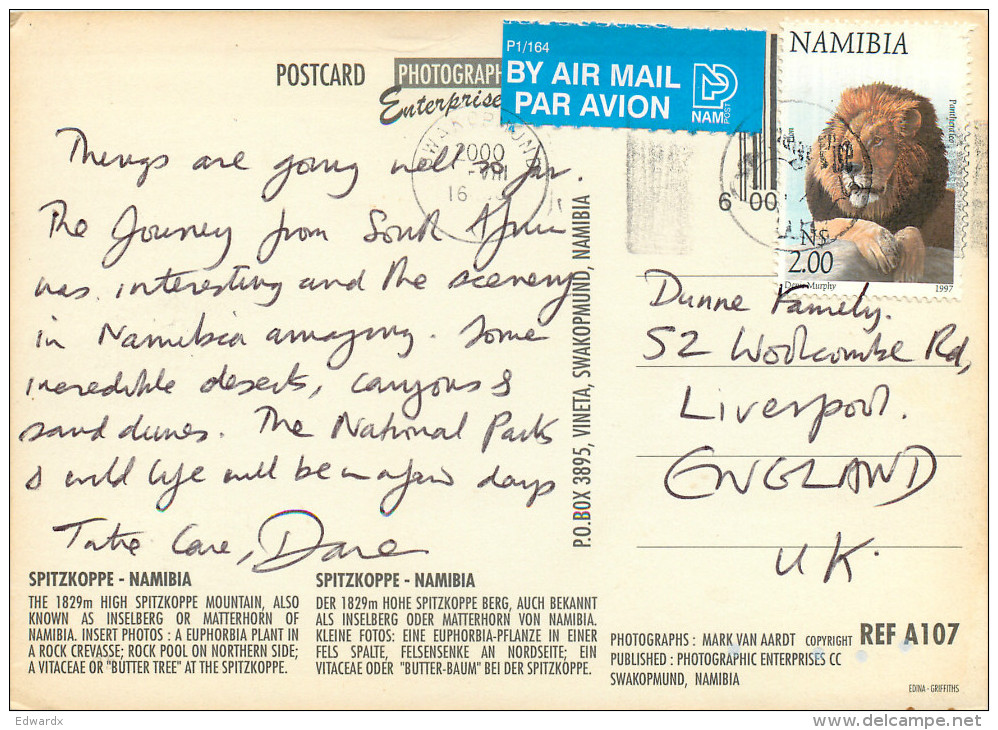 POSTCARD
PHOTOGRAPH
Enterprise
P1/164
BY AIR MAIL
PAR AVION
NAM
POST
NAMIBIA
N$
2.00
Murphy
1997
2000
VIII
16
6 00
Things are going well so far.
The Journey from South Africa
was interesting and the scenery
in Namibia amazing. Some
incredible deserts, canyons &
sand dunes. The National Parks
& wild life will be in a few days
Take Care, Dave
P.O.BOX 3895, VINETA, SWAKOPMUND, NAMIBIA
Dunne Family.
52 Woolcombe Rd,
Liverpool.
ENGLAND
U.K.
SPITZKOPPE - NAMIBIA
THE 1829m HIGH SPITZKOPPE MOUNTAIN, ALSO
KNOWN AS INSELBERG OR MATTERHORN OF
NAMIBIA. INSERT PHOTOS : A EUPHORBIA PLANT IN
A ROCK CREVASSE; ROCK POOL ON NORTHERN SIDE;
A VITACEAE OR "BUTTER TREE" AT THE SPITZKOPPE.
SPITZKOPPE - NAMIBIA
DER 1829m HOHE SPITZKOPPE BERG, AUCH BEKANNT
ALS INSELBERG ODER MATTERHORN VON NAMIBIA.
KLEINE FOTOS: EINE EUPHORBIA-PFLANZE IN EINER
FELS SPALTE, FELSENSENKE AN NORDSEITE; EIN
VITACEAE ODER "BUTTER-BAUM" BEI DER SPITZKOPPE.
PHOTOGRAPHS : MARK VAN AARDT COPYRIGHT REF A107
PUBLISHED : PHOTOGRAPHIC ENTERPRISES CC
SWAKOPMUND, NAMIBIA
EDINA - GRIFFITHS
Edwardx
delcampe.net